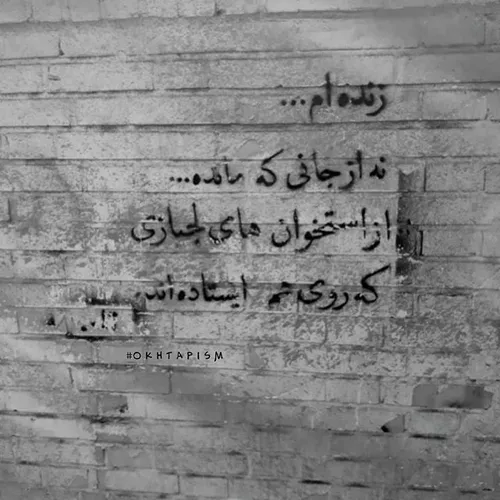 زنده ام...
نه از جانی که مانده...
از استخوان های لجبازی
که روی هم ایستاده اند
#OKHTAPISM